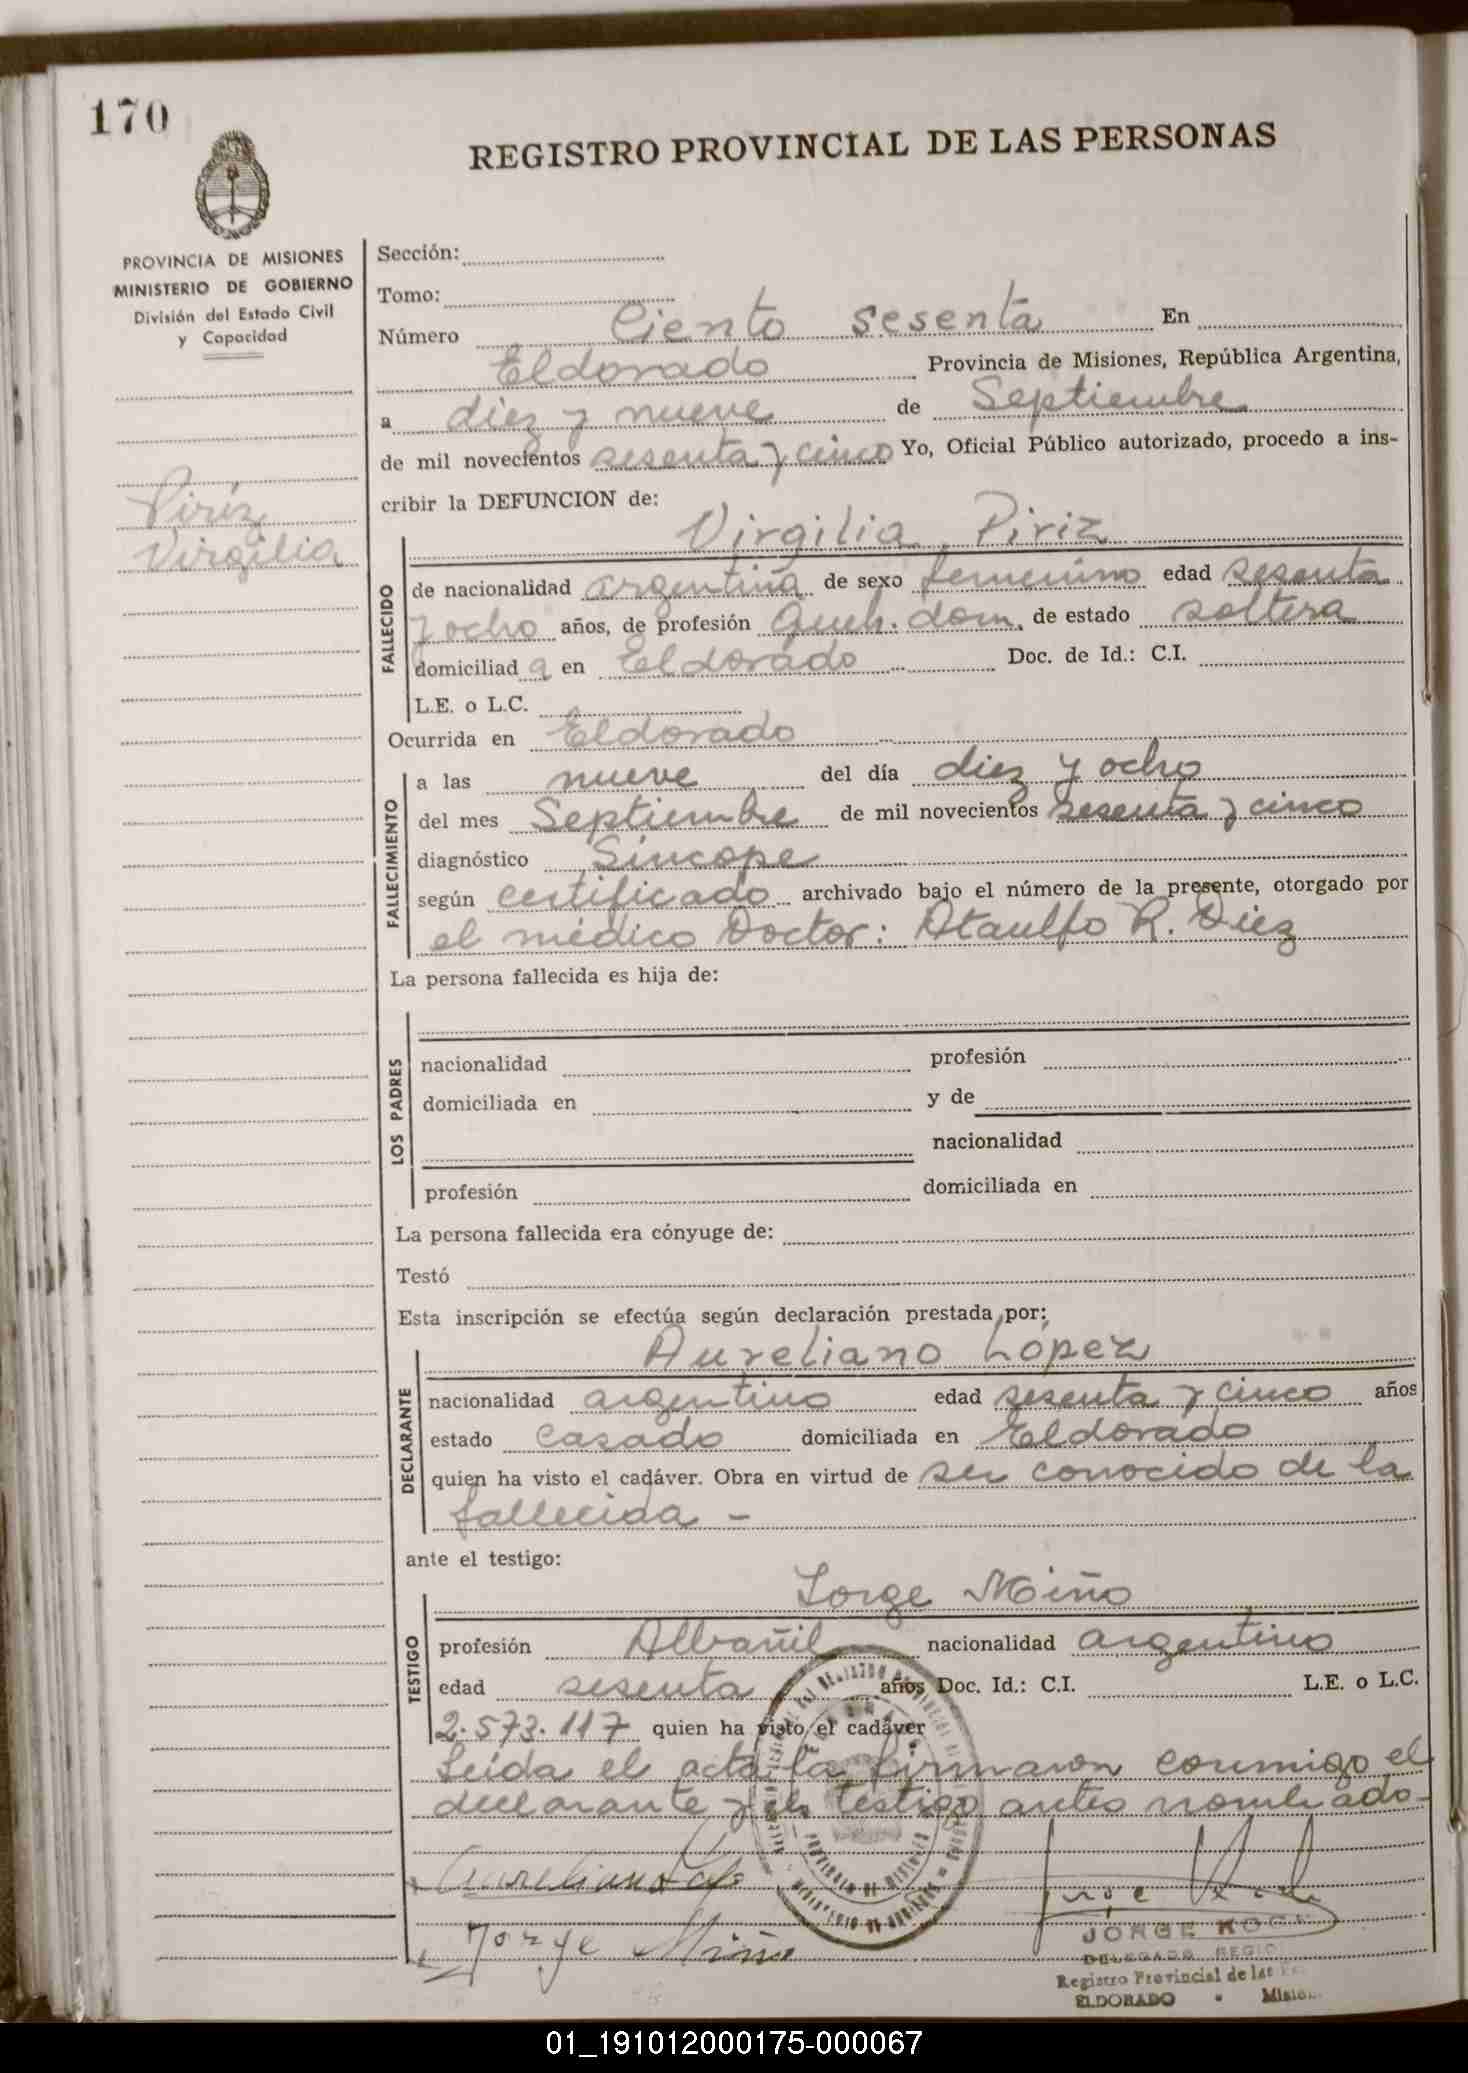 170
REGISTRO PROVINCIAL DE LAS PERSONAS
PROVINCIA DE MISIONES
MINISTERIO DE GOBIERNO
División del Estado Civil
y Capacidad
Píriz
Virgilia
Sección:
Tomo:
Número Ciento sesenta En
Eldorado Provincia de Misiones, República Argentina,
a diez y nueve de Septiembre
de mil novecientos sesenta y cinco Yo, Oficial Público autorizado, procedo a ins-
cribir la DEFUNCION de:
Virgilia Piriz
FALLECIDO
de nacionalidad argentina de sexo femenino edad sesenta
y ocho años, de profesión Queh. dom. de estado soltera
domiciliad a en Eldorado Doc. de Id.: C.I.
L.E. o L.C.
Ocurrida en Eldorado
FALLECIMIENTO
a las nueve del día diez y ocho
del mes Septiembre de mil novecientos sesenta y cinco
diagnóstico Síncope
según certificado archivado bajo el número de la presente, otorgado por
el médico Doctor: Ataulfo R. Diez
La persona fallecida es hija de:
LOS PADRES
nacionalidad profesión
domiciliada en y de
nacionalidad
profesión domiciliada en
La persona fallecida era cónyuge de:
Testó
Esta inscripción se efectúa según declaración prestada por:
Aureliano López
DECLARANTE
nacionalidad argentino edad sesenta y cinco años
estado casado domiciliada en Eldorado
quien ha visto el cadáver. Obra en virtud de ser conocido de la
fallecida -
ante el testigo:
Jorge Miño
TESTIGO
profesión Albañil nacionalidad argentino
edad sesenta años Doc. Id.: C.I. L.E. o L.C.
2.573.117 quien ha visto el cadáver
Leída el acta la firmaron conmigo el
declarante y el testigo antes nombrado-
Aureliano
Jorge Miño
PROVINCIA DE MISIONES
JORGE KOCH
DELEGADO REGIO
Registro Provincial de las
ELDORADO - Mision
01_191012000175-000067